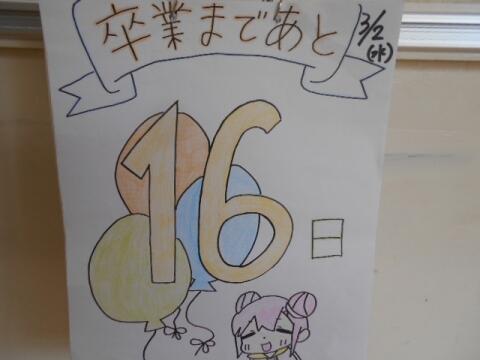 卒業まであと
3/2
(水)
16日